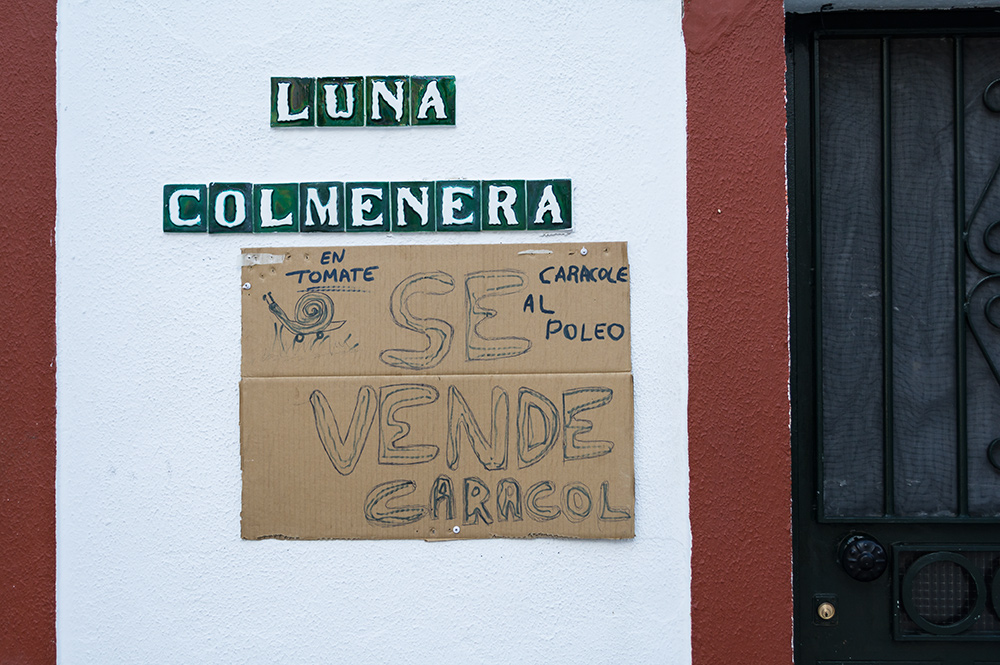 LUNA
COLMENERA
EN
TOMATE
SE
CARACOLE
AL
POLEO
VENDE
CARACOL